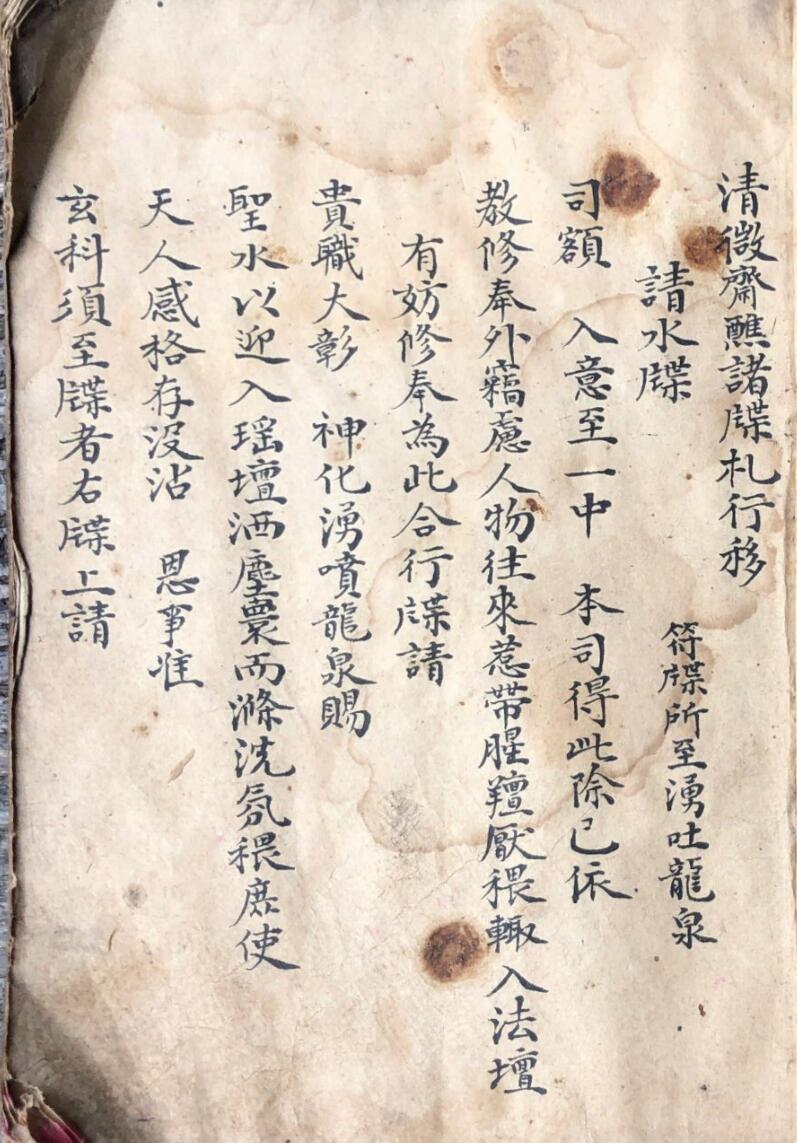 清微齋醮諸牒札行移
請水牒
符牒所至湧吐龍泉
司額 入意至一中 本司得此除已依
教修奉外竊慮人物往來惹帶腥羶厭穢輙入法壇
有妨修奉為此合行牒請
貴職大彰 神化湧噴龍泉賜
聖水以迎入瑶壇洒塵寰而滌洗氛穢庶使
天人感格存没沾 恩事惟
玄科須至牒者右牒上請